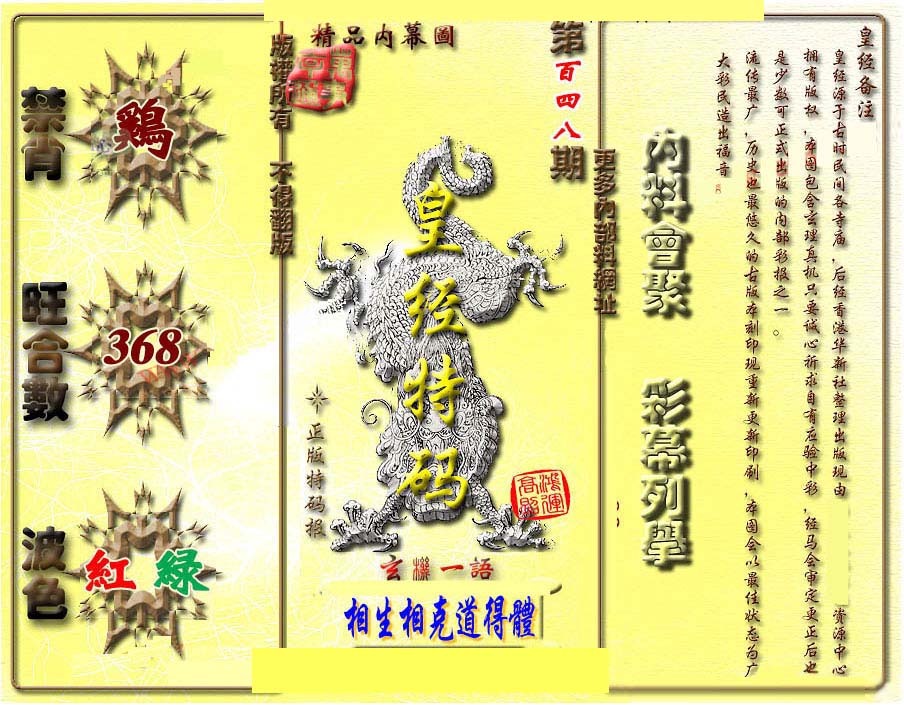 精品内幕圖
第百四八期
版權所有 不得翻版
更多內部料網址
禁肖
鷄
旺合數
368
波色
紅 綠
皇经特码
正版特码报
鴻運高照
玄機一語
相生相克道得體
内料會聚
彩幕列舉
皇经备注
皇经源于古时民间各寺庙,后经香港华新社整理出版现由 资源中心
拥有版权,本图包含玄理真机只要诚心祈求自有应验中彩,经马会审定更正后也
是少数可正式出版的内部彩报之一。
流传最广,历史也最悠久的古版本刻印现重新更新印刷,本图会以最佳状态为广
大彩民造出福音